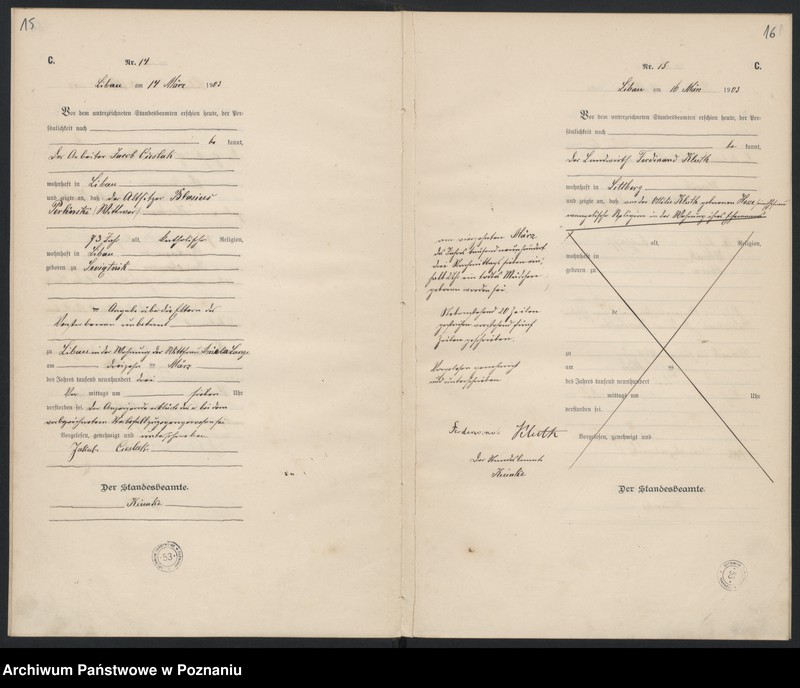 15
C.
Nr. 14
Libau am 14 März 1903
Vor dem unterzeichneten Standesbeamten erschien heute, der Per-
sönlichkeit nach
be kannt,
der Arbeiter Jacob Cieslak
wohnhaft in Libau
und zeigte an, daß der Altsitzer Blasius
73 Jahr alt, katholischer Religion,
wohnhaft in Libau
geboren zu
Angabe über die Eltern des
Verstorbenen unbekannt
zu Libau in der Wohnung der
am dreizehn ten März
des Jahres tausend neunhundert drei
Vor mittags um sieben Uhr
verstorben sei. Der Anzeigende erklärte
Vorgelesen, genehmigt und unterschrieben
Jakob Cieslak
Der Standesbeamte.
53
16
Nr. 15
C.
Libau am 16 März 1903
Vor dem unterzeichneten Standesbeamten erschien heute, der Per-
sönlichkeit nach
be kannt,
der Landwirth Ferdinand Kluth
wohnhaft in
und zeigte an, daß von der Ottilie Kluth geborenen
evangelischer Religion in der Wohnung ihres Ehemannes
alt, Religion,
wohnhaft in
geboren zu
de
zu
am ten
des Jahres tausend neunhundert
mittags um Uhr
verstorben sei.
Vorgelesen, genehmigt und
Der Standesbeamte.
am vierzehnten März
des Jahres tausend neunhundert
drei Nachmittags sieben ein
halb Uhr ein todtes Mädchen
geboren worden sei.
Nebenstehend 20 Zeilen
gestrichen vorstehend fünf
Zeilen geschrieben.
Vorgelesen genehmigt
und unterschrieben
Ferdinand Kluth
Der Standesbeamte
53
Archiwum Państwowe w Poznaniu